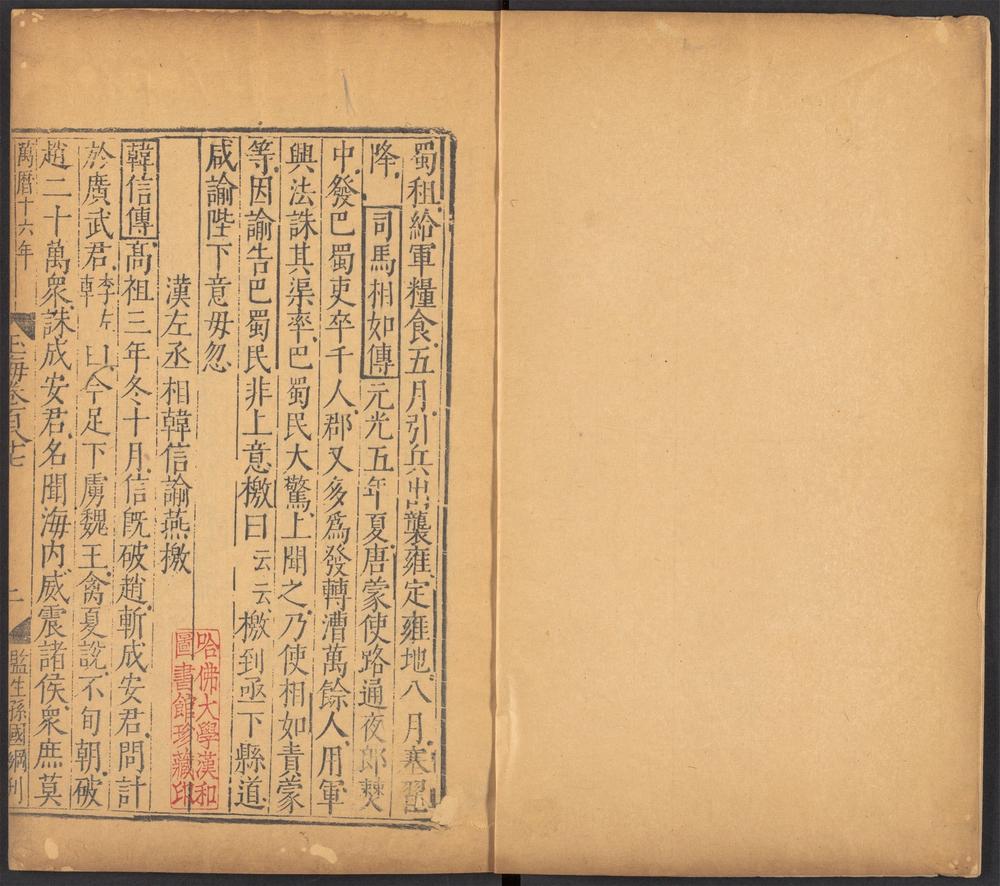 蜀租給軍糧食五月引兵出襲雍定雍地八月塞翟
降司馬相如傳元光五年夏唐蒙使路通夜郎僰
中發巴蜀吏卒千人郡又多爲發轉漕萬餘人用軍
興法誅其渠率巴蜀民大驚上聞之乃使相如責蒙
等因諭告巴蜀民非上意檄曰云云檄到亟下縣道
咸諭陛下意毋忽
漢左丞相韓信諭燕檄
韓信傳高祖三年冬十月信旣破趙斬成安君問計
於廣武君李左車曰今足下虜魏王禽夏說不旬朝破
趙二十萬衆誅成安君名聞海内威震諸侯衆庶莫
萬曆十六年
玉海卷百八七
二
監生孫國綱刊
哈佛大學漢和
圖書館珍藏印